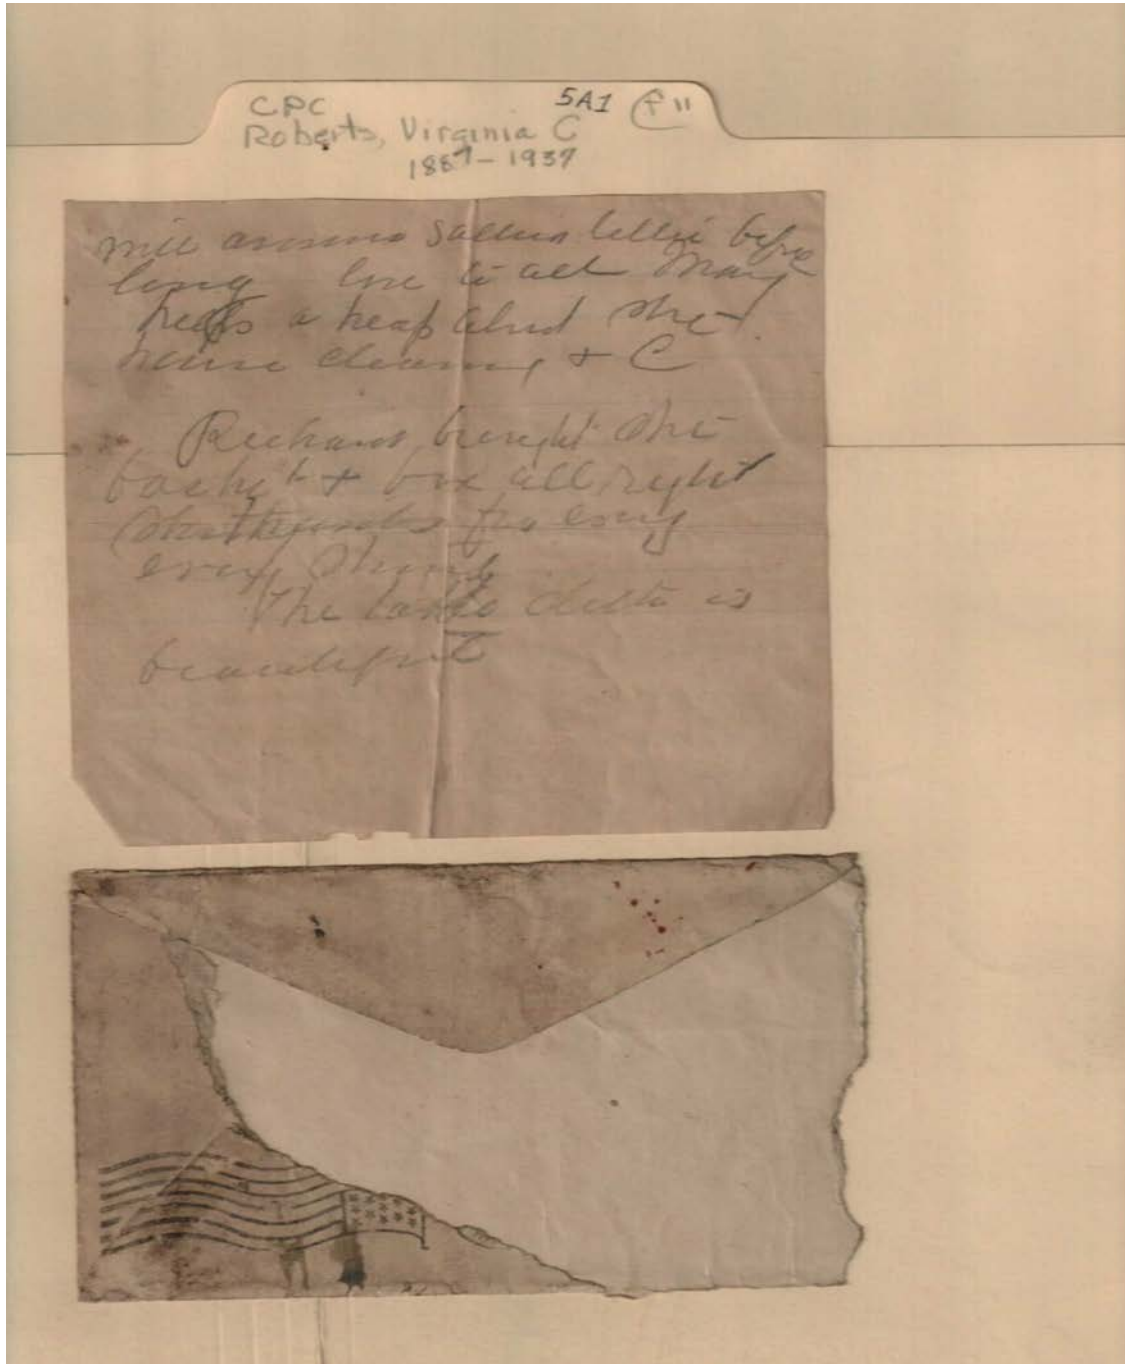 CPC 5A1
Roberts, Virginia C
1887-1937
will answer Sallies letter before
long love to all Mary
helps a heap about the
house cleaning + C
Richard brought the
basket + box all right
thanks for
every thing
The cloth is
beautiful